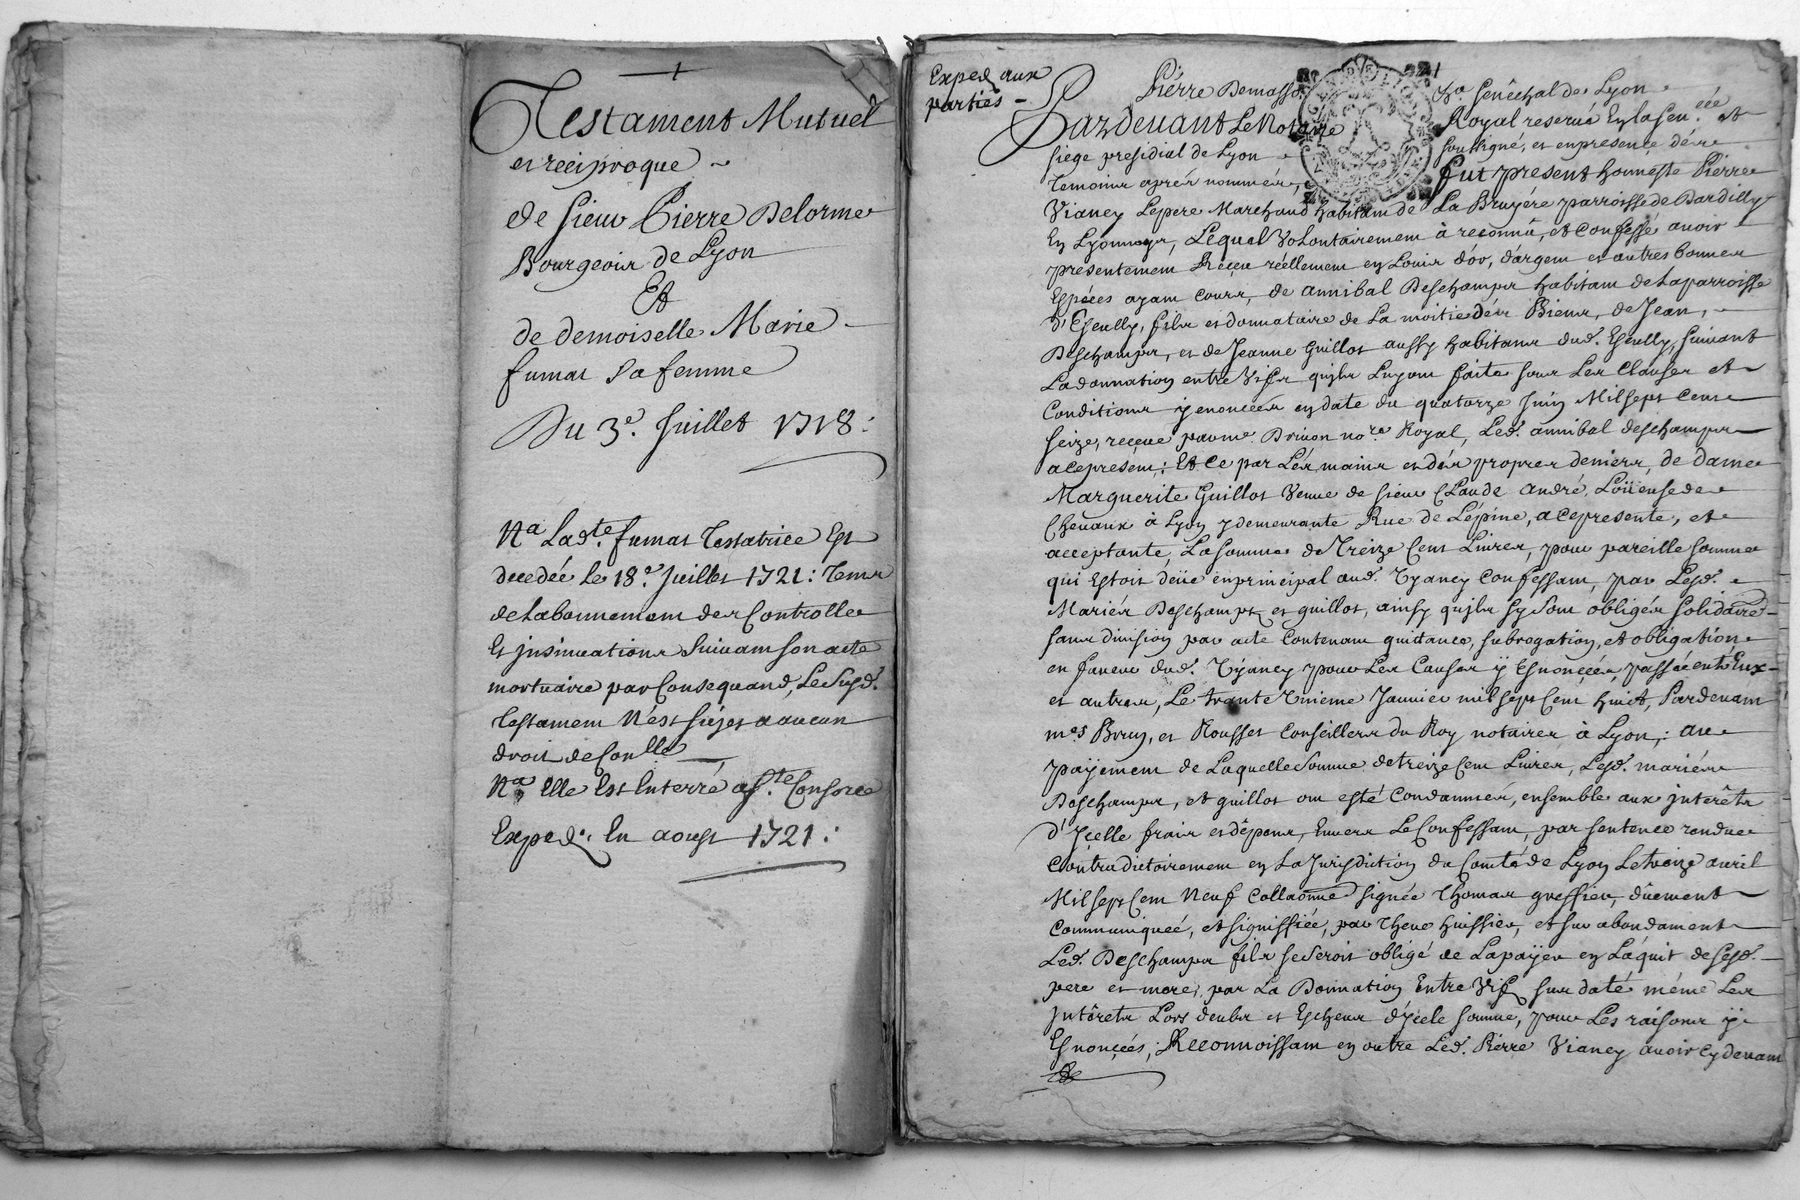 Testament Mutuel
et reciproque ~
de Sieur Pierre Delorme
Bourgeois de Lyon
Et
de demoiselle Marie
fumat Sa femme
Du 3e. Juillet 1718:
Na Lad.te fumat Testatrice Est
decedée le 18e. Juillet 1721: Tems
de Labonnement des Controlle
Et jnsinuations Suivant son acte
mortuaire par Consequand, Le Susd.
Testament N'est Sujet a aucun
droit de Con.lle
Na. elle Est Enterré a S.te Consorce
Exped. En aoust 1721:
Exped. aux
parties -
Pierre Demasso
Senechal de Lyon
Pardevant Le Notaire
Royal reservé En la Sen.ée et
siege presidial de Lyon
soussigné, et en presence des
Temoins aprés nommés,
fut present honneste Pierre
Vianey Le pere Marchand habitant de La Bruyére parroisse de Dardilly
En Lyonnois, Lequel volontairement à reconnû, et Confessé avoir
presentement Reçeu réellement en Louis d'or, d'argent et autres bonnes
Espéces ayant cours, de annibal Deschamps habitant de La parroisse
d'Esculy, fils et donnataire de La moitié dés Biens, de Jean,
Deschamps, et de Jeanne Guillot aussy habitans dud. Escully, suivant
La donnation entre Vifs qu'ils Luy ont faite sous Les Clauses et
Conditions y enoncées en date du quatorze Juin Mil sept cent
seize, reçeue par me. Drivon no.re Royal, Led. annibal deschamps
a ce present: Et ce par Lés mains et dés propres deniers, de dame
Marguerite Guillot Veuve de sieur Claude andré, Loüeuse de
Chevaux à Lyon y demeurante Rue de Lépine, a ce presente, et
acceptante, La somme de Treize Cent Livres, pour pareille somme
qui Estoit deüe en principal aud. Vyaney Confessant, par Lesd.
Mariés Deschamps et guillot, ainsy qu'ils sy sont obligés solidaire-
sans division par acte Contenant quittance, subrogation, et obligation
en faveur dud. Vyaney pour Les Causes ÿ Esnoncées, passée entre Eux
et autres, Le trante Unieme Janvier mil sept Cent huict, Pardevant
mes Brun, et Rousset Conseillers du Roy notaires à Lyon; au
payement de Laquelle Somme de treize Cent Livres, Lesd. mariés
Deschamps, et guillot ont esté Condamnés, ensemble aux jnterêts
d'Jcelle frais et dépens, Envers Le Confessant, par sentence rendue
Contradictoirement en La Jurisdiction du Comté de Lyon Le treize avril
Mil sept Cent Neuf Collaonné signée Thomas greffier, duement
Communiquée, et signiffiée, par Huissier, et sur abondament
Led. Deschamps fils se seroit obligé de La payer en L'acquit de sesd.
pere et mere, par La Donnation Entre Vifs sus daté même Les
jntêrets Lors deubs et Escheus d'ycelle somme, pour Les raisons ÿ
Esnoncées; Reconnoissant en outre Led. Pierre Vianey avoir cy devant